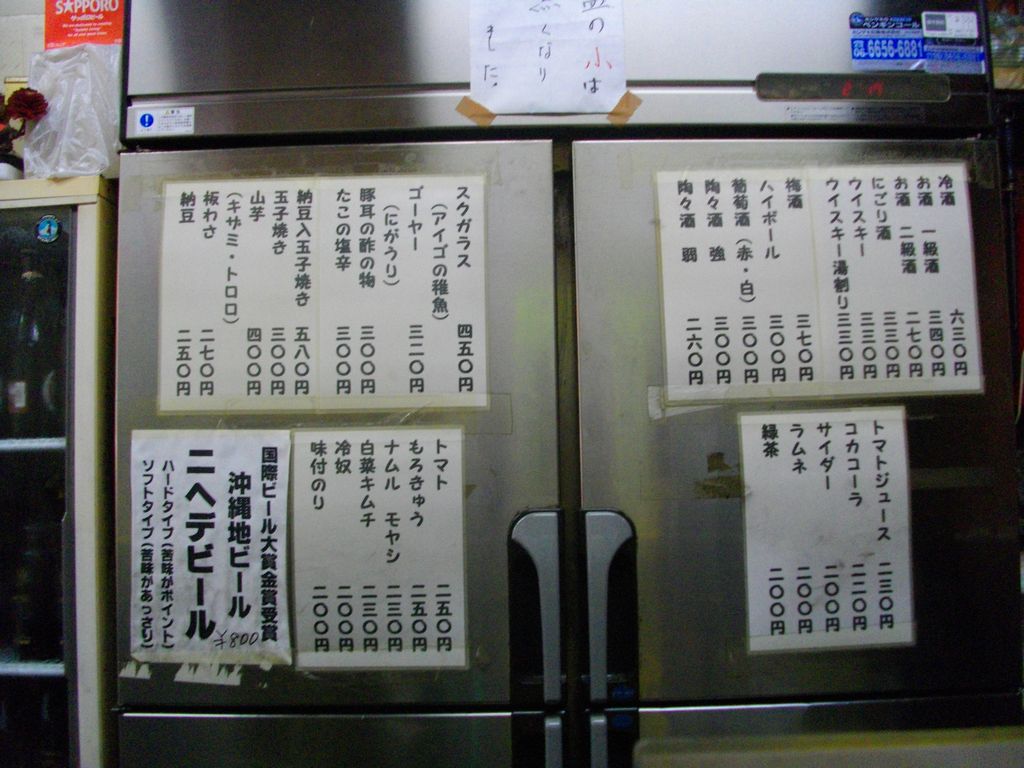 SAPPORO
サッポロビール
のツは
くなり
ました。
ペンギンコール
06-6656-6881
冷酒 六三〇円
お酒 一級酒 三四〇円
お酒 二級酒 二七〇円
にごり酒 三三〇円
ウイスキー 三三〇円
ウイスキー湯割り 三三〇円
梅酒 三七〇円
ハイボール 三〇〇円
葡萄酒(赤・白) 三〇〇円
陶々酒 強 三〇〇円
陶々酒 弱 二六〇円
スクガラス 四五〇円
(アイゴの稚魚)
ゴーヤー 三二〇円
(にがうり)
豚耳の酢の物 三〇〇円
たこの塩辛 三〇〇円
納豆入玉子焼き 五八〇円
玉子焼き 三〇〇円
山芋 四〇〇円
(キザミ・トロロ)
板わさ 二七〇円
納豆 二五〇円
トマトジュース 二三〇円
コカコーラ 二二〇円
サイダー 二〇〇円
ラムネ 二〇〇円
緑茶 二〇〇円
トマト 二五〇円
もろきゅう 二五〇円
ナムル モヤシ 二三〇円
白菜キムチ 二三〇円
冷奴 二〇〇円
味付のり 二〇〇円
国際ビール大賞金賞受賞
沖縄地ビール
ニヘデビール
¥800
ハードタイプ(苦味がポイント)
ソフトタイプ(苦味があっさり)